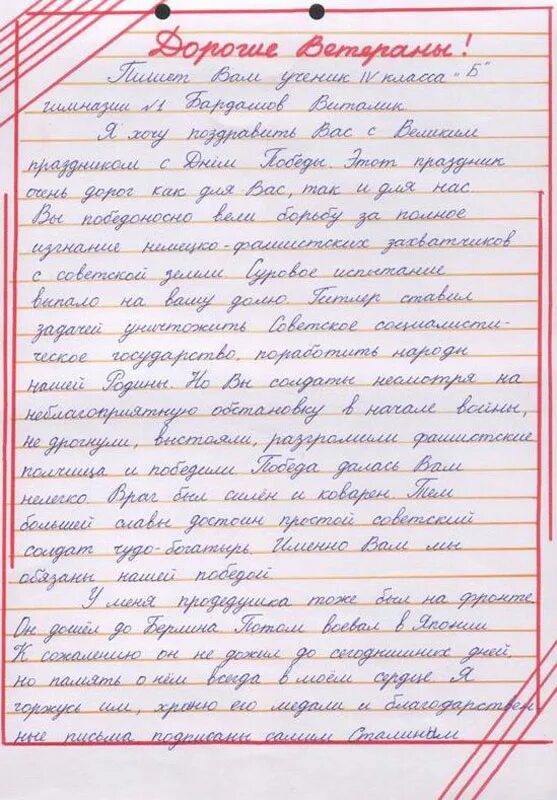 Дорогие Ветераны!
Пишет Вам ученик IV класса "Б"
гимназии №1 Бардашов Виталик.
Я хочу поздравить Вас с Великим
праздником с Днём Победы. Этот праздник
очень дорог как для Вас, так и для нас.
Вы победоносно вели борьбу за полное
изгнание немецко-фашистских захватчиков
с советской земли. Суровое испытание
выпало на вашу долю. Гитлер ставил
задачей уничтожить Советское социалисти-
ческое государство, поработить народы
нашей Родины. Но Вы солдаты несмотря на
неблагоприятную обстановку в начале войны,
не дрогнули, выстояли, разгромили фашистские
полчища и победили Победа далась Вам
нелегко. Враг был силён и коварен. Тем
большей славы достоин простой советский
солдат чудо-богатырь. Именно Вам мы
обязаны нашей победой
У меня продедушка тоже был на фронте.
Он дошёл до Берлина Потом воевал в Японии
К сожалению он не дожил до сегоднишних дней,
но память о нём всегда в моём сердце. Я
горжусь им, храню его медали и благодарствен-
ные письма подписаны самим Сталиным